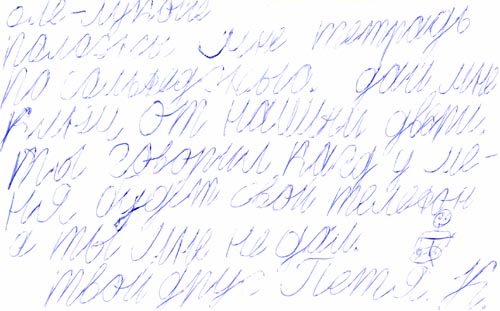 оле-лукоие
палажы мне тетрадь
по сальведжыо. дай мне
ключ, от нашый двери.
ты говорил кагда у ме-
ня будет свой телефон
а ты мне не дал.
твой друг Петя. К.